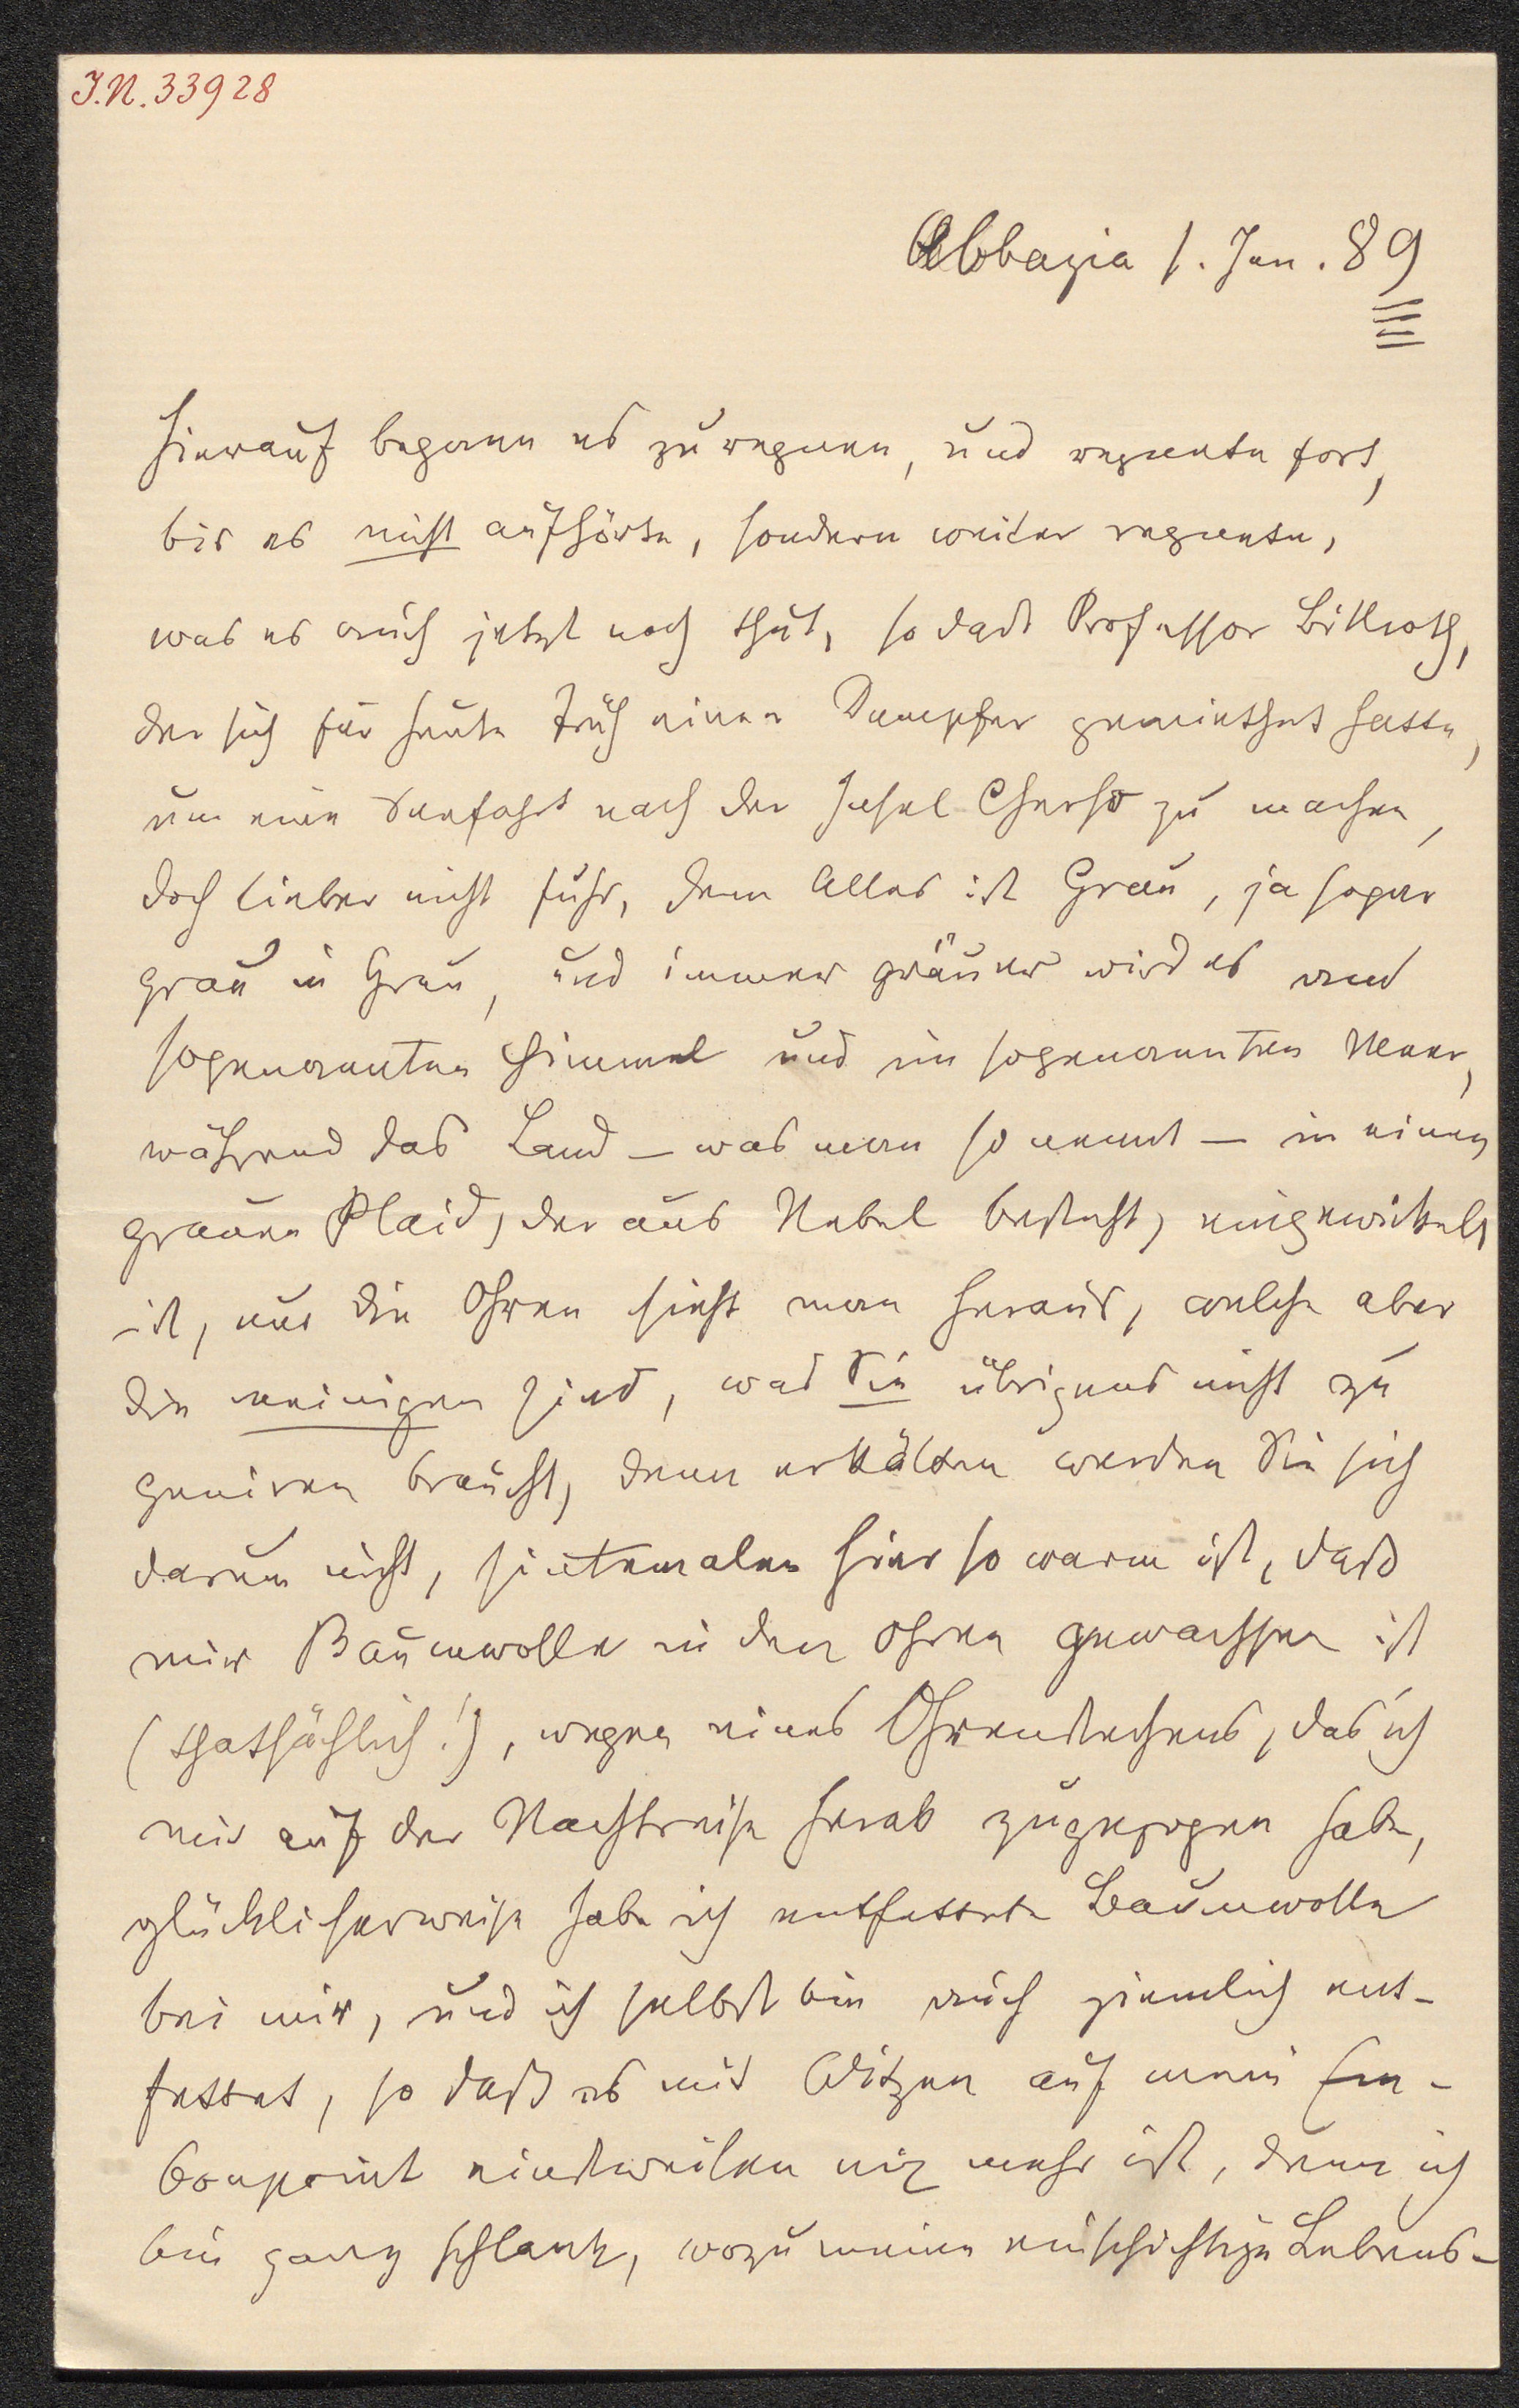 I.N. 33928
Abbazia 1. Jan. 89
Hierauf begann es zu regnen, und regnete fort,
bis es nicht aufhörte, sondern weiter regnete,
was es auch jetzt noch thut, so daß Professor Billroth,
der sich für heute Früh einen Dampfer gemiethet hatte,
um eine Seefahrt nach der Insel Cherso zu machen,
doch lieber nicht fuhr, denn Alles ist Grau, ja sogar
grau in Grau, und immer gräuer wird es am
sogenannten Himmel und im sogenannten Meer,
während das Land – was man so nennt – in einen
grauen Plaid, der aus Nebel besteht, eingewickelt
ist, nur die Ohren sieht man heraus, welche aber
die meinigen sind, was Sie übrigens nicht zu
geniren braucht, denn erkälten werden Sie sich
darum nicht, sintemalen hier so warm ist, daß
mir Baumwolle in den Ohren gewachsen ist
(thatsächlich!), wegen eines Ohrenstechens, das ich
mir auf der Nachtreise herab zugezogen habe,
glücklicherweise habe ich entfettete Baumwolle
bei mir, und ich selbst bin auch ziemlich ent-
fettet, so daß es mit Witzen auf mein Em-
bonpoint einstweilen nix mehr ist, denn ich
bin ganz schlank, wozu meine einschichtige Lebens-